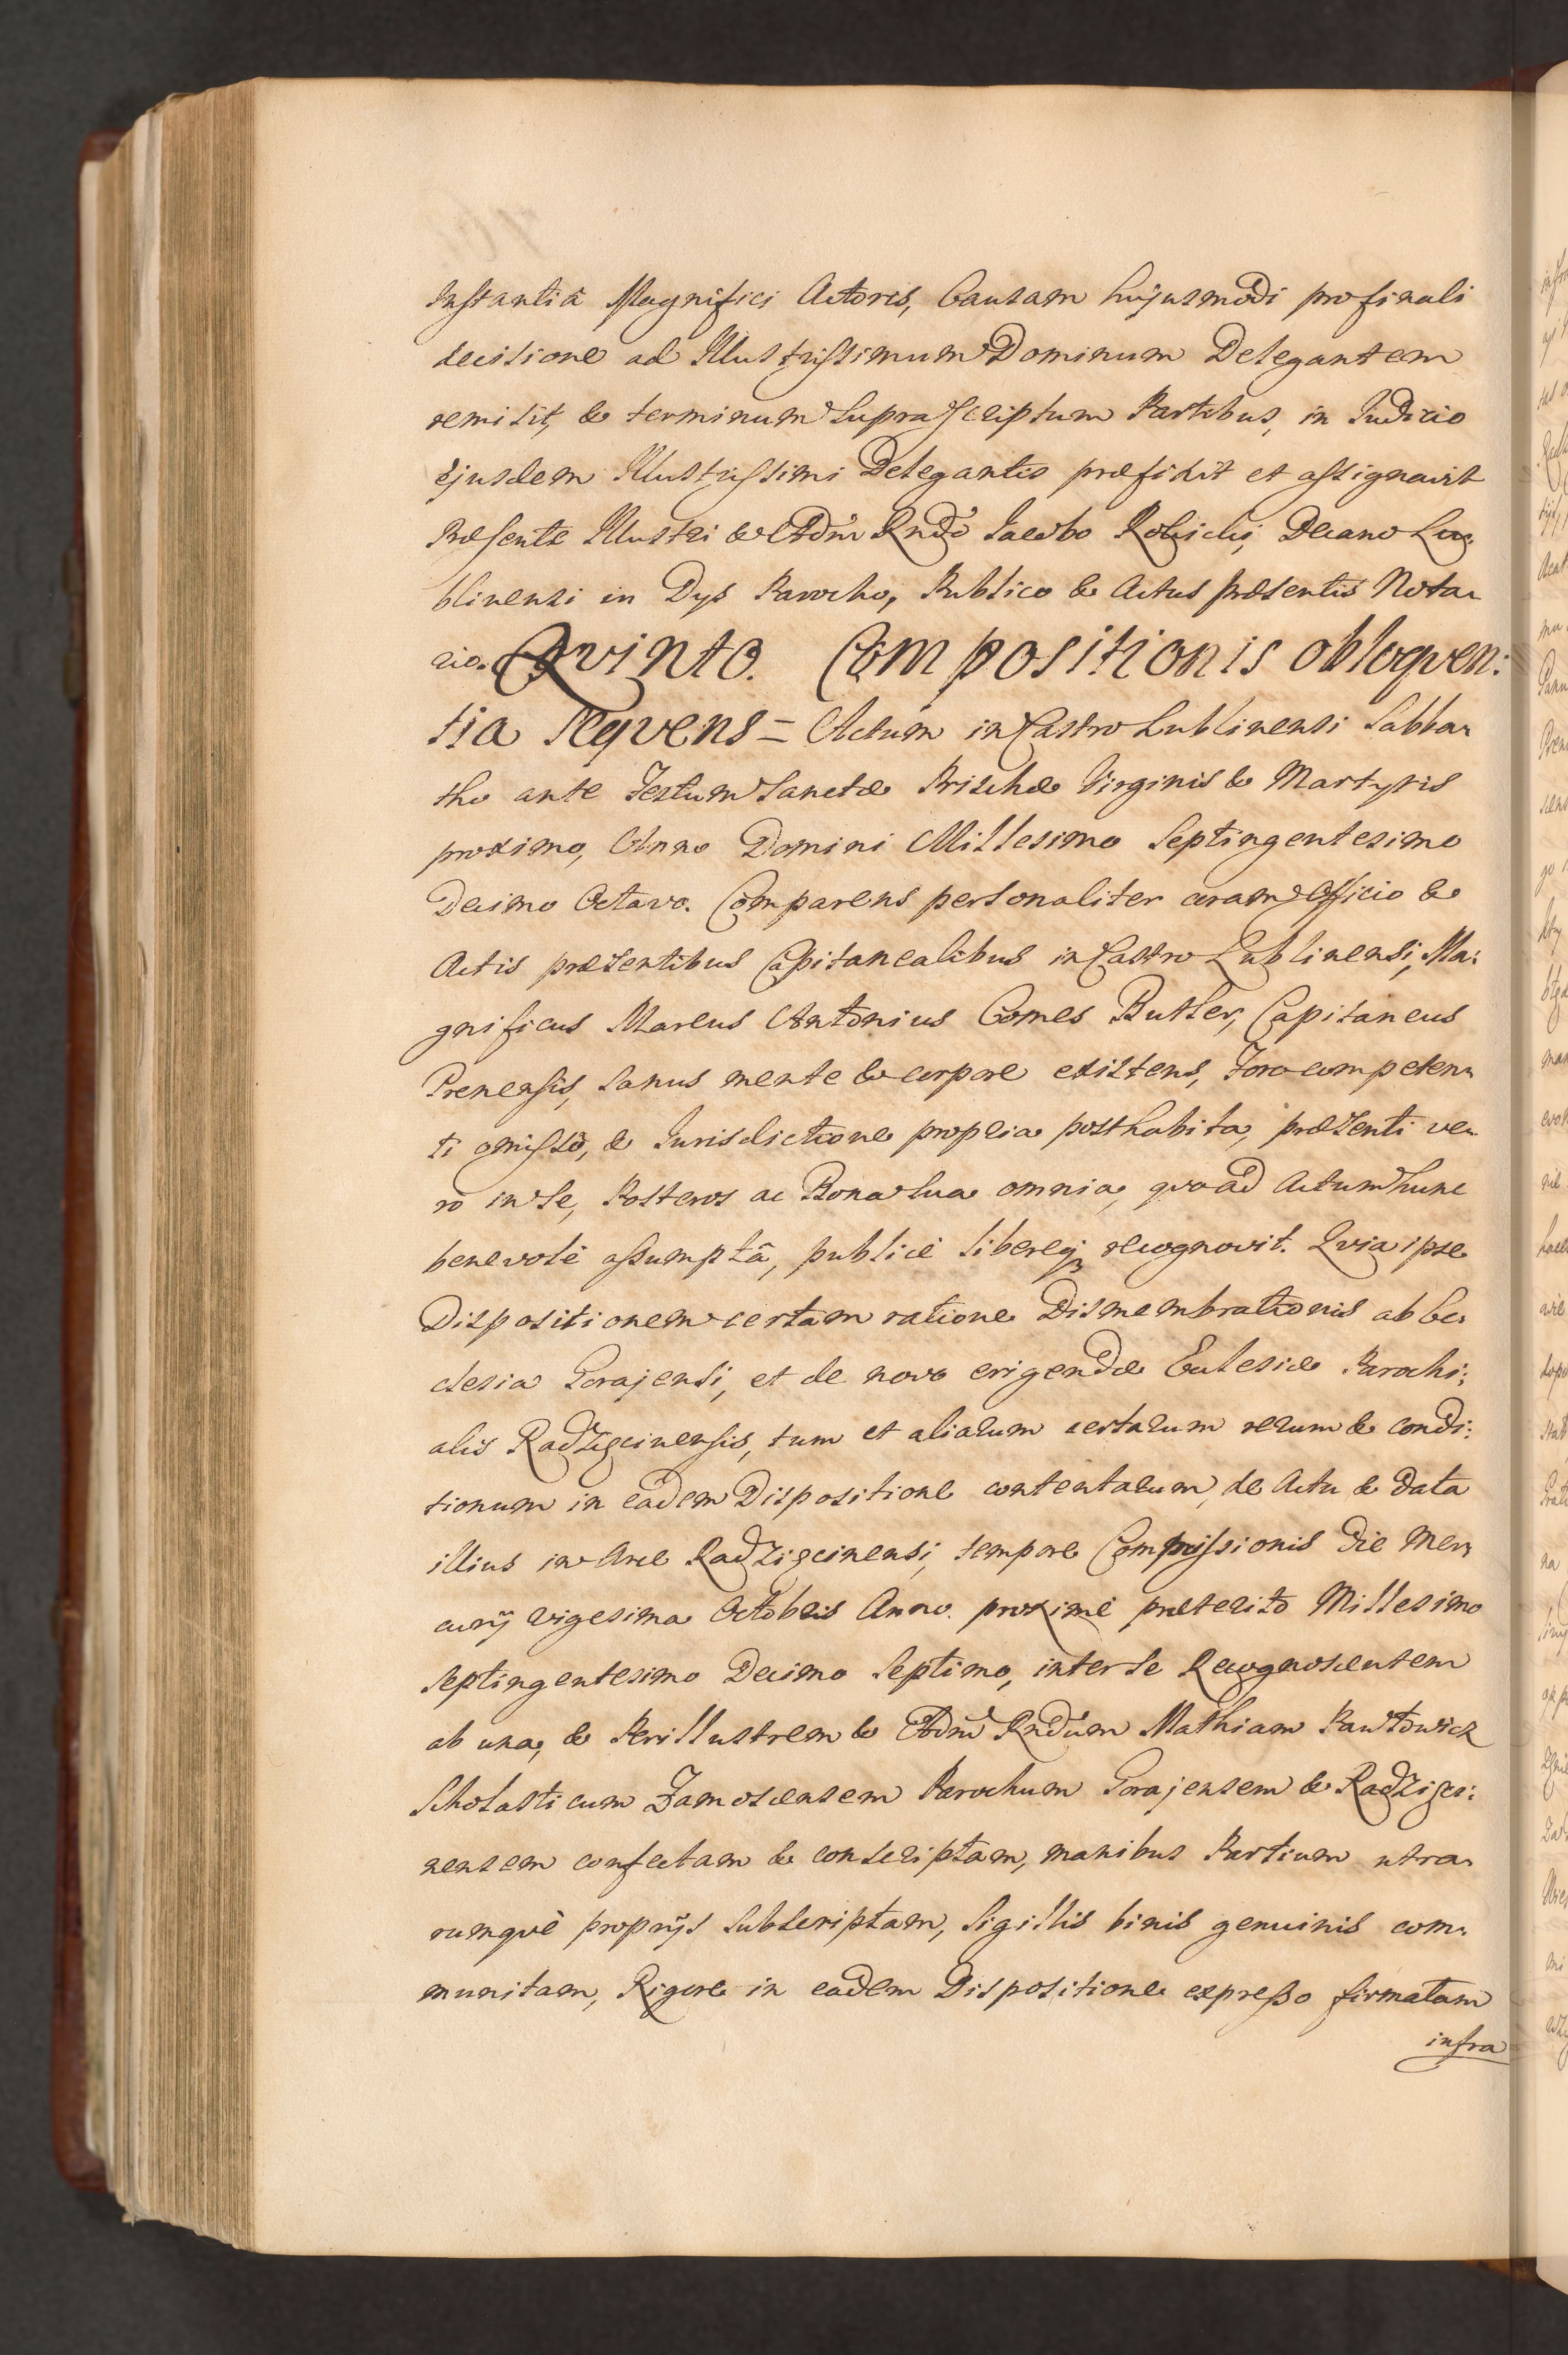 Instantiâ Magnifici Actoris, Causam hujusmodi pro finali
decisione ad Illustrissimum Dominum Delegantem
remisit, & terminum suprascriptum Partibus, in Judicio
Ejusdem Illustrissimi Delegantis præfixit et assignavit
Præsente Illustri & Adm̃ Rndõ Jacobo Decano Lu:
blinensi in Dys Parocho, Publico & Actus præsentis Nota:
rio. Qvinto. Compositionis obloqven:
tia seqvens = Actum in Castro Lublinensi Sabba:
tho ante Festum Sanctæ Prischæ Virginis & Martyris
proximo, Anno Domini Millesimo Septingentesimo
Decimo Octavo. Comparens personaliter coram Officio &
Actis præsentibus Capitanealibus in Castro Lublinensi, Ma:
gnificus Marcus Antonius Comes Butler, Capitaneus
Prenensis, sanus mente & corpore existens, Foro competen:
ti omisso, & Jurisdictione propria posthabita, præsenti ve:
ro in se, Posteros ac Bona sua omnia, qvoad Actum hunc
benevolè assumptâ, publicè libereq; recognovit. Qvia ipse
Dispositionem certam ratione Dismembrationis ab Ec:
clesia Gorajensi, et de novo erigendæ Ecclesiæ Parochi:
alis Radzięcinensis, tum et aliarum certarum rerum & condi:
tionum in eadem Dispositione contentarum, de Actu & data
illius in Arce Radzięcinensi, tempore Compossionis die Mer:
curij vigesima Octobris Anno proximè præterito Millesimo
Septingentesimo Decimo Septimo, inter se Recognoscentem
ab una, & Perillustrem & Adm̃ Rndum Mathiam Pawłowicz
Scholasticum Zamoscensem Parochum Gorajensem & Radzięci:
nensem confectam & conscriptam, manibus Partium utra:
rumqvè proprijs subscriptam, Sigillis binis genuinis com:
munitam, Rigore in eadem Dispositione expresso firmatam
infra